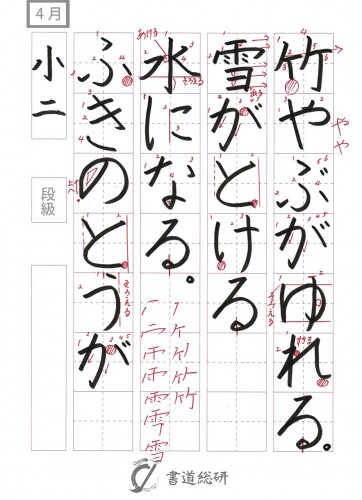 竹やぶがゆれる。
雪がとける
水になる。
ふきのとうが
4月
小二
段級
あける
そろえる
やや
そろえる
そろえる
竹
雪
書道総研